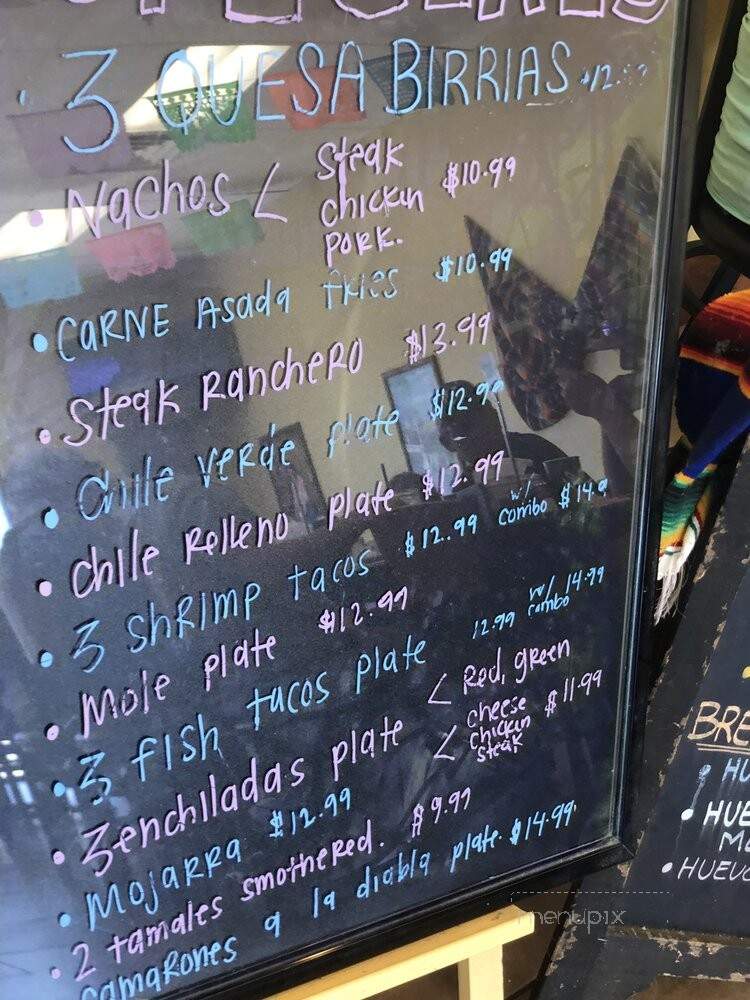 3 QUESA BIRRIAS
Nachos < Steak chickin pork. $10.99
CARNE Asada fries $10.99
Steak Ranchero $13.99
Chile verde plate $12.99
chile Relleno plate $12.99
3 shrimp tacos $12.99 w/ combo $14.9
Mole plate $12.99
3 fish tacos plate 12.99 w/ combo 14.99
3 enchiladas plate < Red, green < cheese chickin steak $11.99
Mojarra $12.99
2 tamales smothered. $9.99
camarones a la diabla plate. $14.99
BRE
HU
HUE
HUEVO
menupix